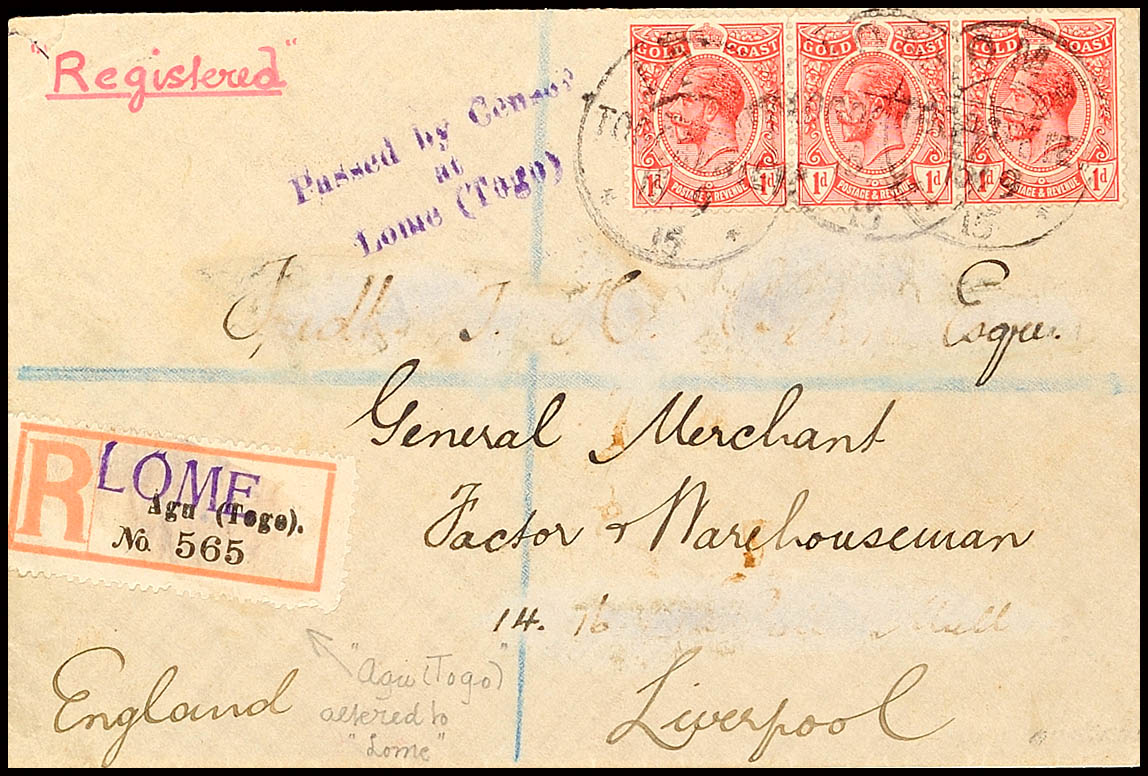 "Registered"
GOLD COAST
1d POSTAGE & REVENUE 1d
GOLD COAST
1d POSTAGE & REVENUE 1d
GOLD COAST
1d POSTAGE & REVENUE 1d
15
15
15
Passed by Censor
at
Lome (Togo)
Esqre.
General Merchant
Factor & Warehouseman
14.
Liverpool
England
R
LOME
Agu (Togo).
No. 565
"Agu (Togo)"
altered to
"Lome"